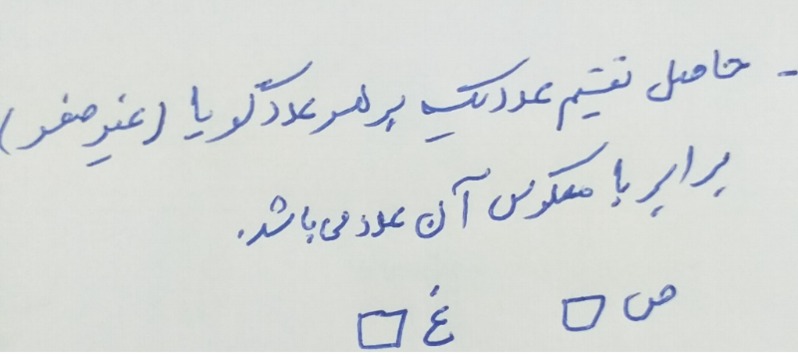 - حاصل تقسیم عدد یک بر هر عدد گویا (غیر صفر)
برابر با معکوس آن عدد می باشد.
ص □ غ □